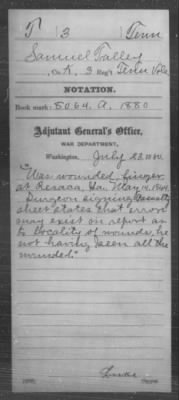 T 3 Tenn
Samuel Talley
Co. K, 3 Reg't Tenn Vols
NOTATION.
Book mark: 8064. A. 1880
Adjutant General's Office,
WAR DEPARTMENT,
Washington, July 23 1880
"Was wounded, finger
at Resaca, Ga. May 14, 1864.
Surgeon signing Casualty
sheet states that errors
may exist on report as
to locality of wounds, he
not having seen all the
wounded"